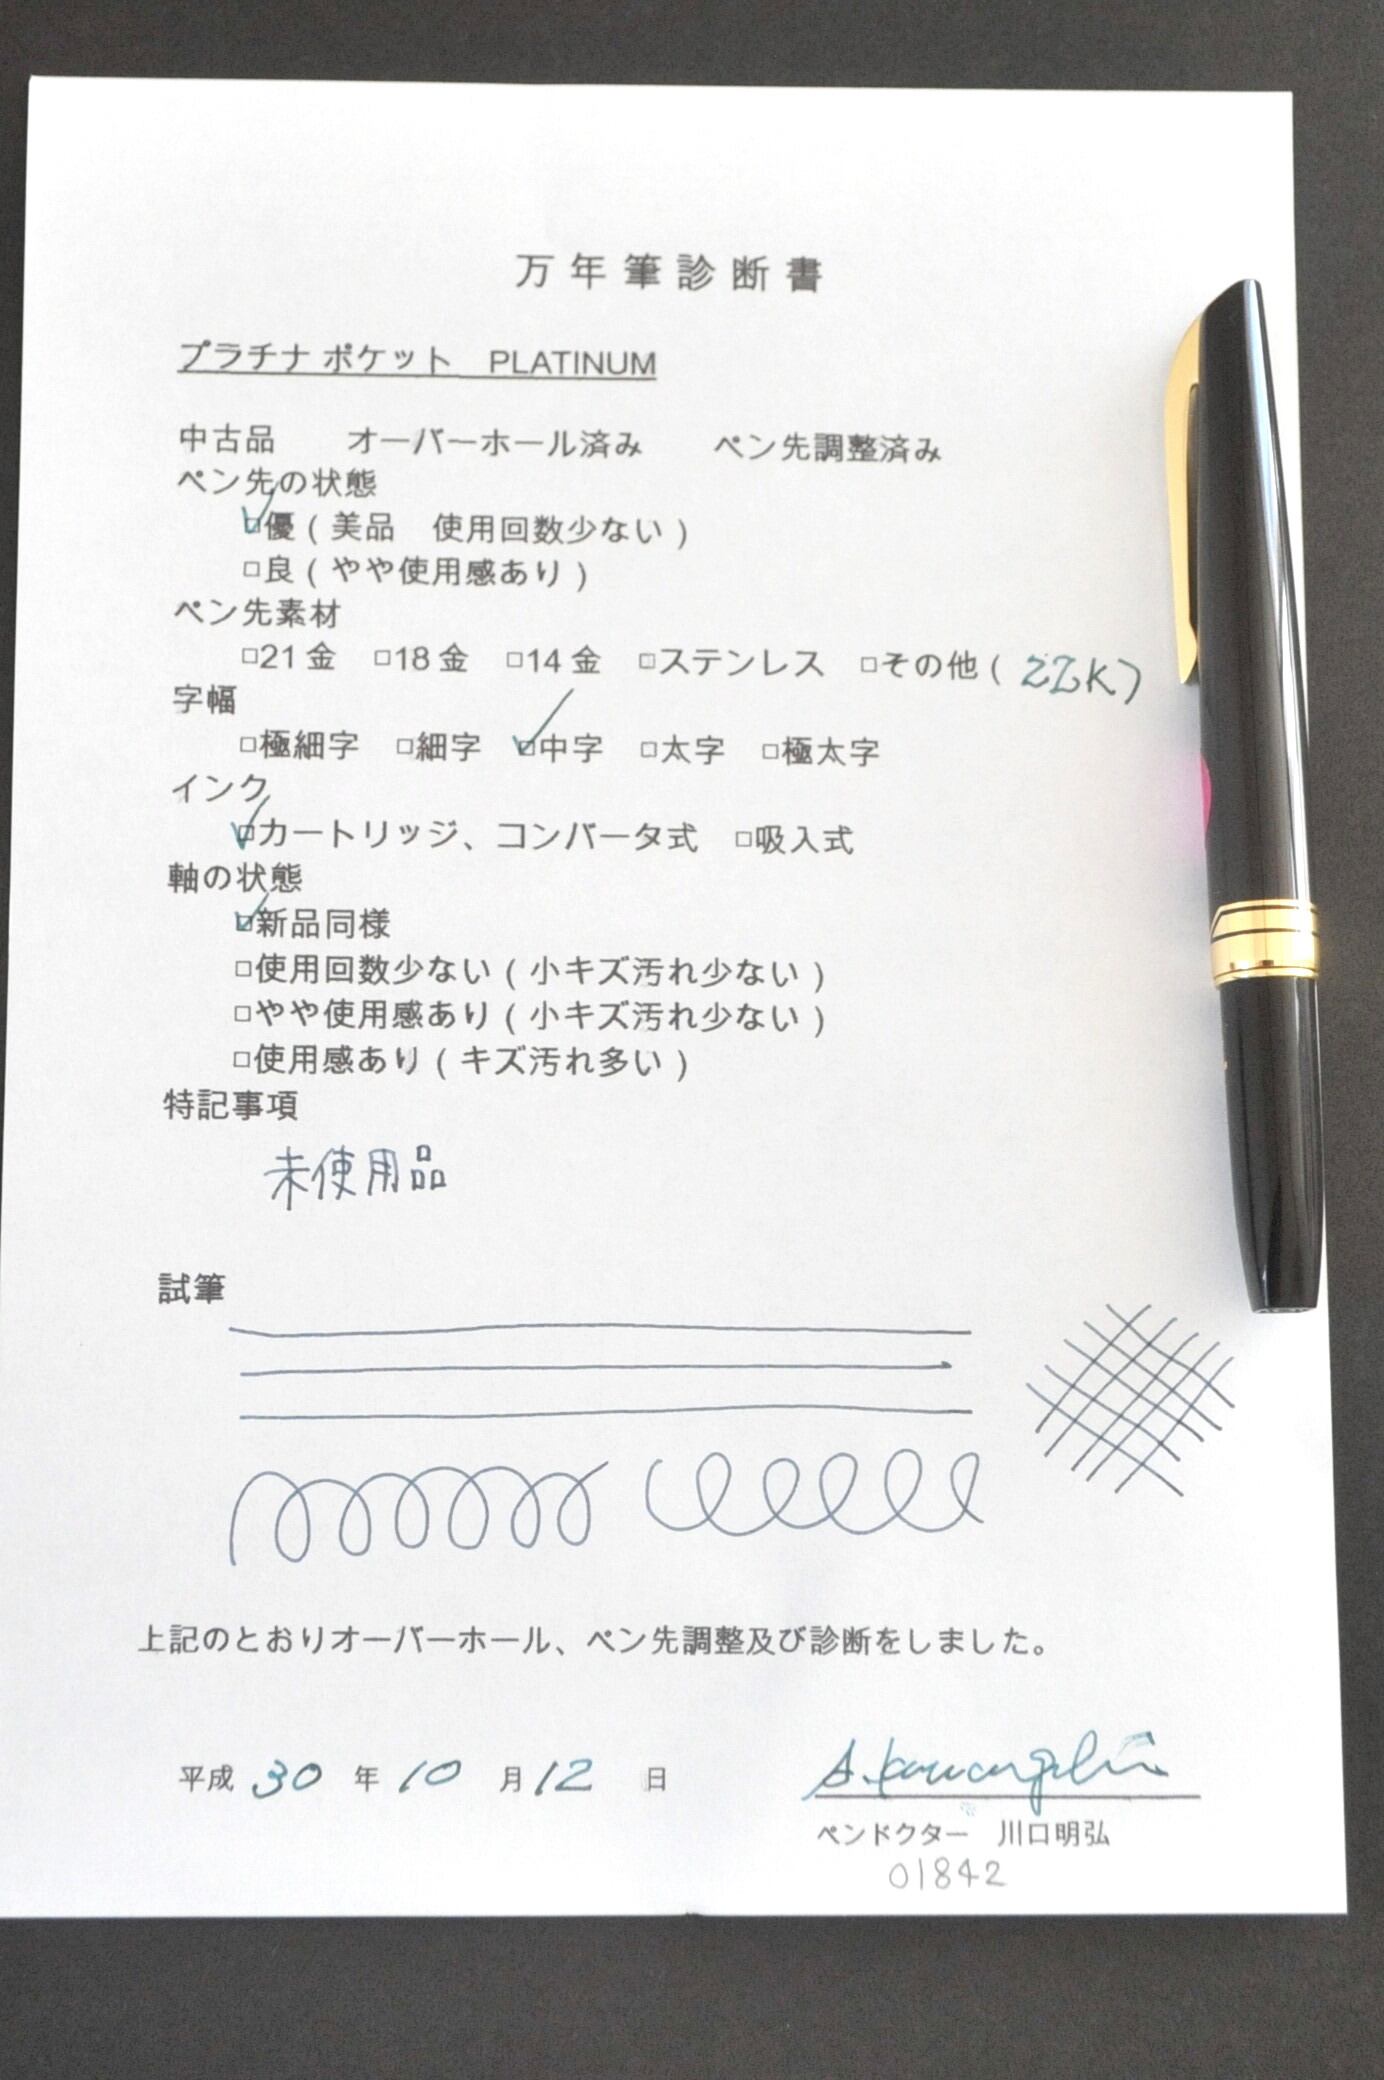 万年筆診断書
プラチナ ポケット PLATINUM
中古品 オーバーホール済み ペン先調整済み
ペン先の状態
☑優（美品 使用回数少ない）
□良（やや使用感あり）
ペン先素材
□21金 □18金 □14金 □ステンレス □その他（22K）
字幅
□極細字 □細字 ☑中字 □太字 □極太字
インク
☑カートリッジ、コンバータ式 □吸入式
軸の状態
☑新品同様
□使用回数少ない（小キズ汚れ少ない）
□やや使用感あり（小キズ汚れ少ない）
□使用感あり（キズ汚れ多い）
特記事項
未使用品
試筆
上記のとおりオーバーホール、ペン先調整及び診断をしました。
平成 30 年 10 月 12 日
ペンドクター 川口明弘
01842